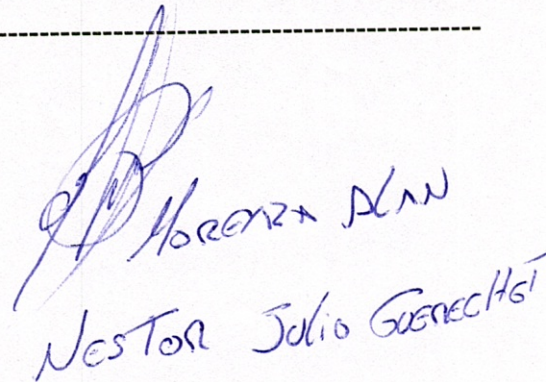 MOREYRA ALAN
NESTOR JULIO GUERECHET